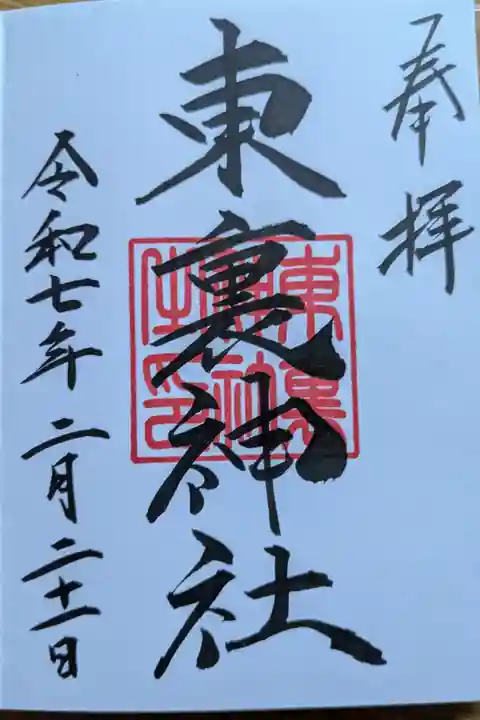 奉拝
東裏神社
東裏
神社
之印
令和七年二月二十一日